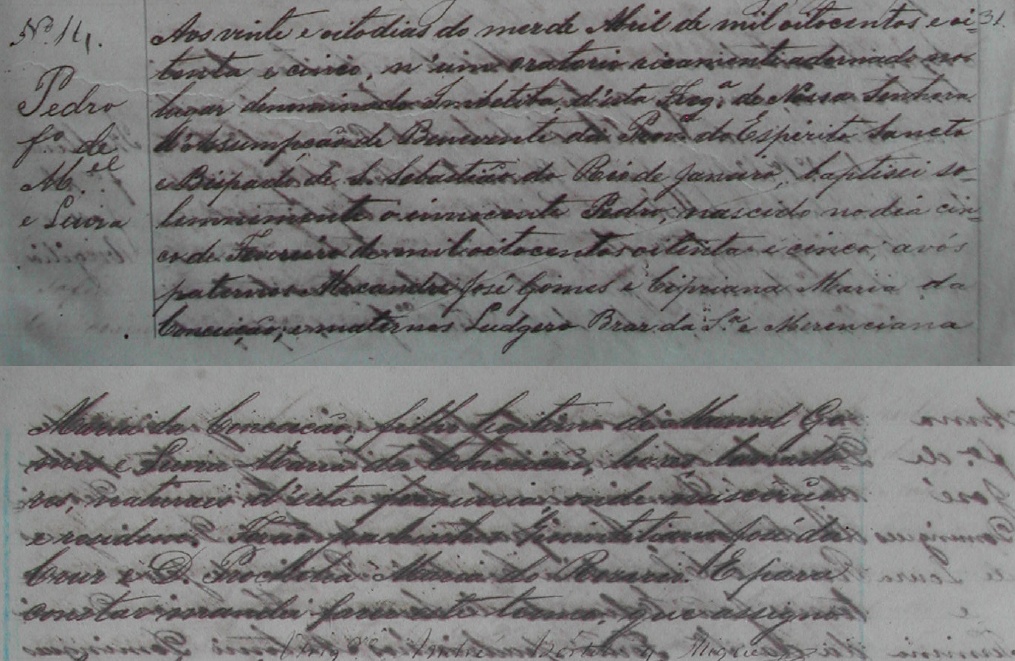 Nº 14.
Pedro
fº de
M.el
e Luiza
31.
Aos vinte e oito dias do mez de Abril de mil oitocentos e oi=
tenta e cinco, n'um oratorio ricamente adornado no
lugar denominado Imbetiba d'esta Freg.a de Nossa Senhora
d'Assumpção de Benevente da Prov.a do Espirito Sancto
e Bispado de S. Sebastião do Rio de Janeiro, baptisei so=
lemnimente o innocente Pedro, nascido no dia cin=
co de Fevereiro de mil oitocentos oitenta e cinco, avós
paternos Alexandre José Gomes e Cipriana Maria da
Conceição, e maternos Ludgero Braz da S.a e Merenciana
Maria da Conceição, filho legitimo de Manoel Go=
mes e Luiza Maria da Conceição,
naturaes d'esta freguezia, onde
e residem. Forão padrinhos José da
Cruz e D. Maria do Rozario. E para
constar mandei fazer este termo, que assigno